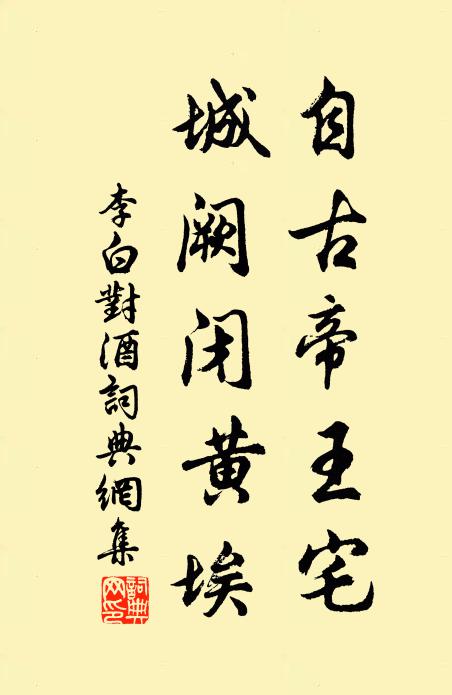 自古帝王宅
城阙闭黄埃
李白對酒詞典網集
詞典網印